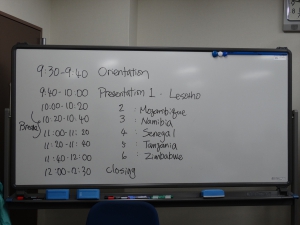 9:30-9:40 Orientation
9:40-10:00 Presentation 1 · Lesotho
10:00-10:20 2 : Mozambique
10:20-10:40 3 : Namibia
Break
11:00-11:20 4 : Senegal
11:20-11:40 5 : Tanzania
11:40-12:00 6 : Zimbabwe
12:00-12:30 closing